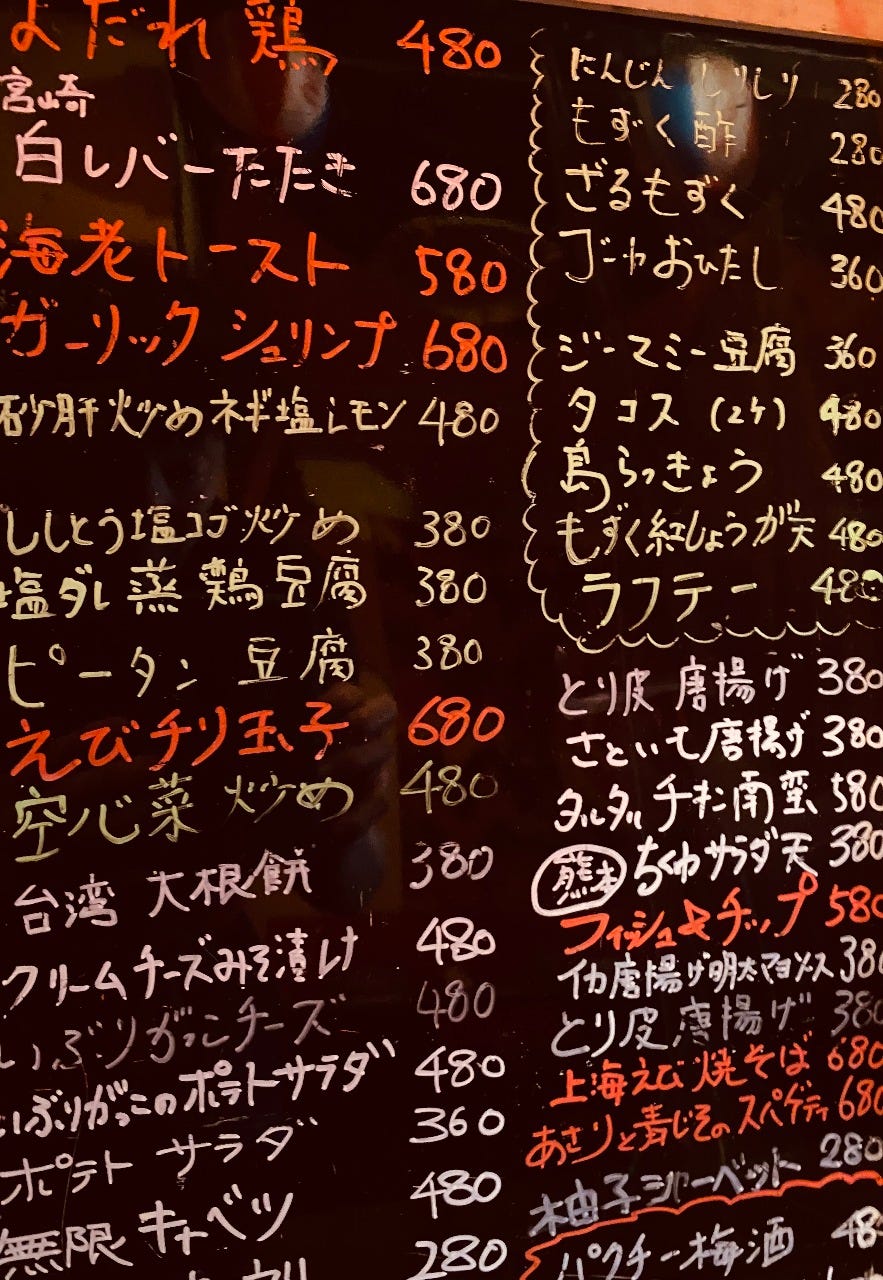 よだれ鶏 480
宮崎
白レバーたたき 680
海老トースト 580
ガーリックシュリンプ 680
砂肝炒めネギ塩レモン 480
ししとう塩コブ炒め 380
塩ダレ蒸鶏豆腐 380
ピータン豆腐 380
えびチリ玉子 680
空心菜炒め 480
台湾大根餅 380
クリームチーズみそ漬け 480
いぶりがっこチーズ 480
いぶりがっこのポテトサラダ 480
ポテトサラダ 360
無限キャベツ 480
280
にんじんしりしり 280
もずく酢 280
ざるもずく 480
ゴーヤおひたし 360
ジーマミー豆腐 360
タコス (2ケ) 480
島らっきょう 480
もずく紅しょうが天 480
ラフテー 480
とり皮唐揚げ 380
さといも唐揚げ 380
タルタルチキン南蛮 580
熊本 ちくわサラダ天 380
フィッシュ&チップ 580
イカ唐揚げ明太マヨソース 380
とり皮唐揚げ 380
上海えび焼そば 680
あさりと青じそのスパゲティ 680
柚子シャーベット 280
パクチー梅酒 48